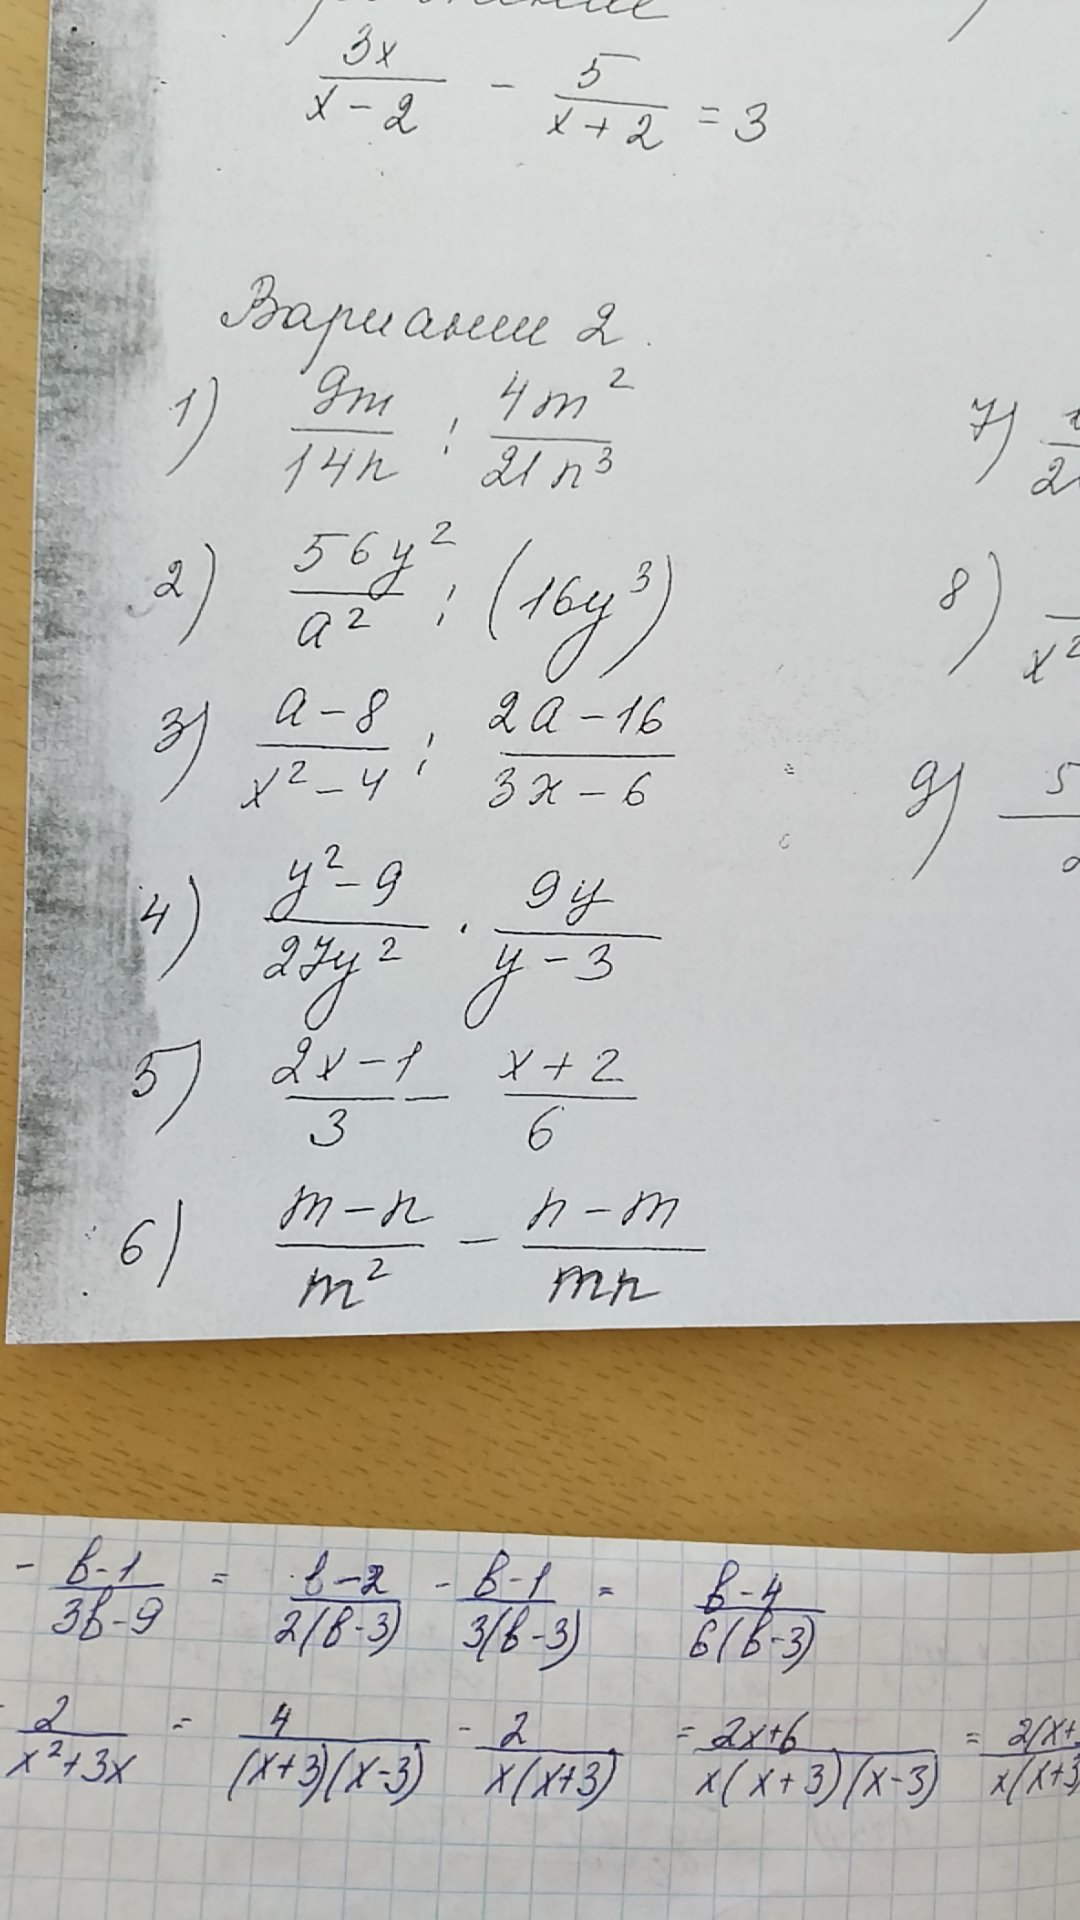 3x/(x-2) - 5/(x+2) = 3
Вариант 2.
1) 9m/14n : 4m²/21n³
7)
2) 56y²/a² : (16y³)
8)
3) (a-8)/(x²-4) : (2a-16)/(3x-6)
9)
4) (y²-9)/27y² · 9y/(y-3)
5) (2x-1)/3 - (x+2)/6
6) (m-n)/m² - (n-m)/mn
- (b-1)/(3b-9) = (b-2)/2(b-3) - (b-1)/3(b-3) = (b-4)/6(b-3)
- 2/(x²+3x) = 4/(x+3)(x-3) - 2/x(x+3) = (2x+6)/x(x+3)(x-3) = 2(x+/x(x+3)